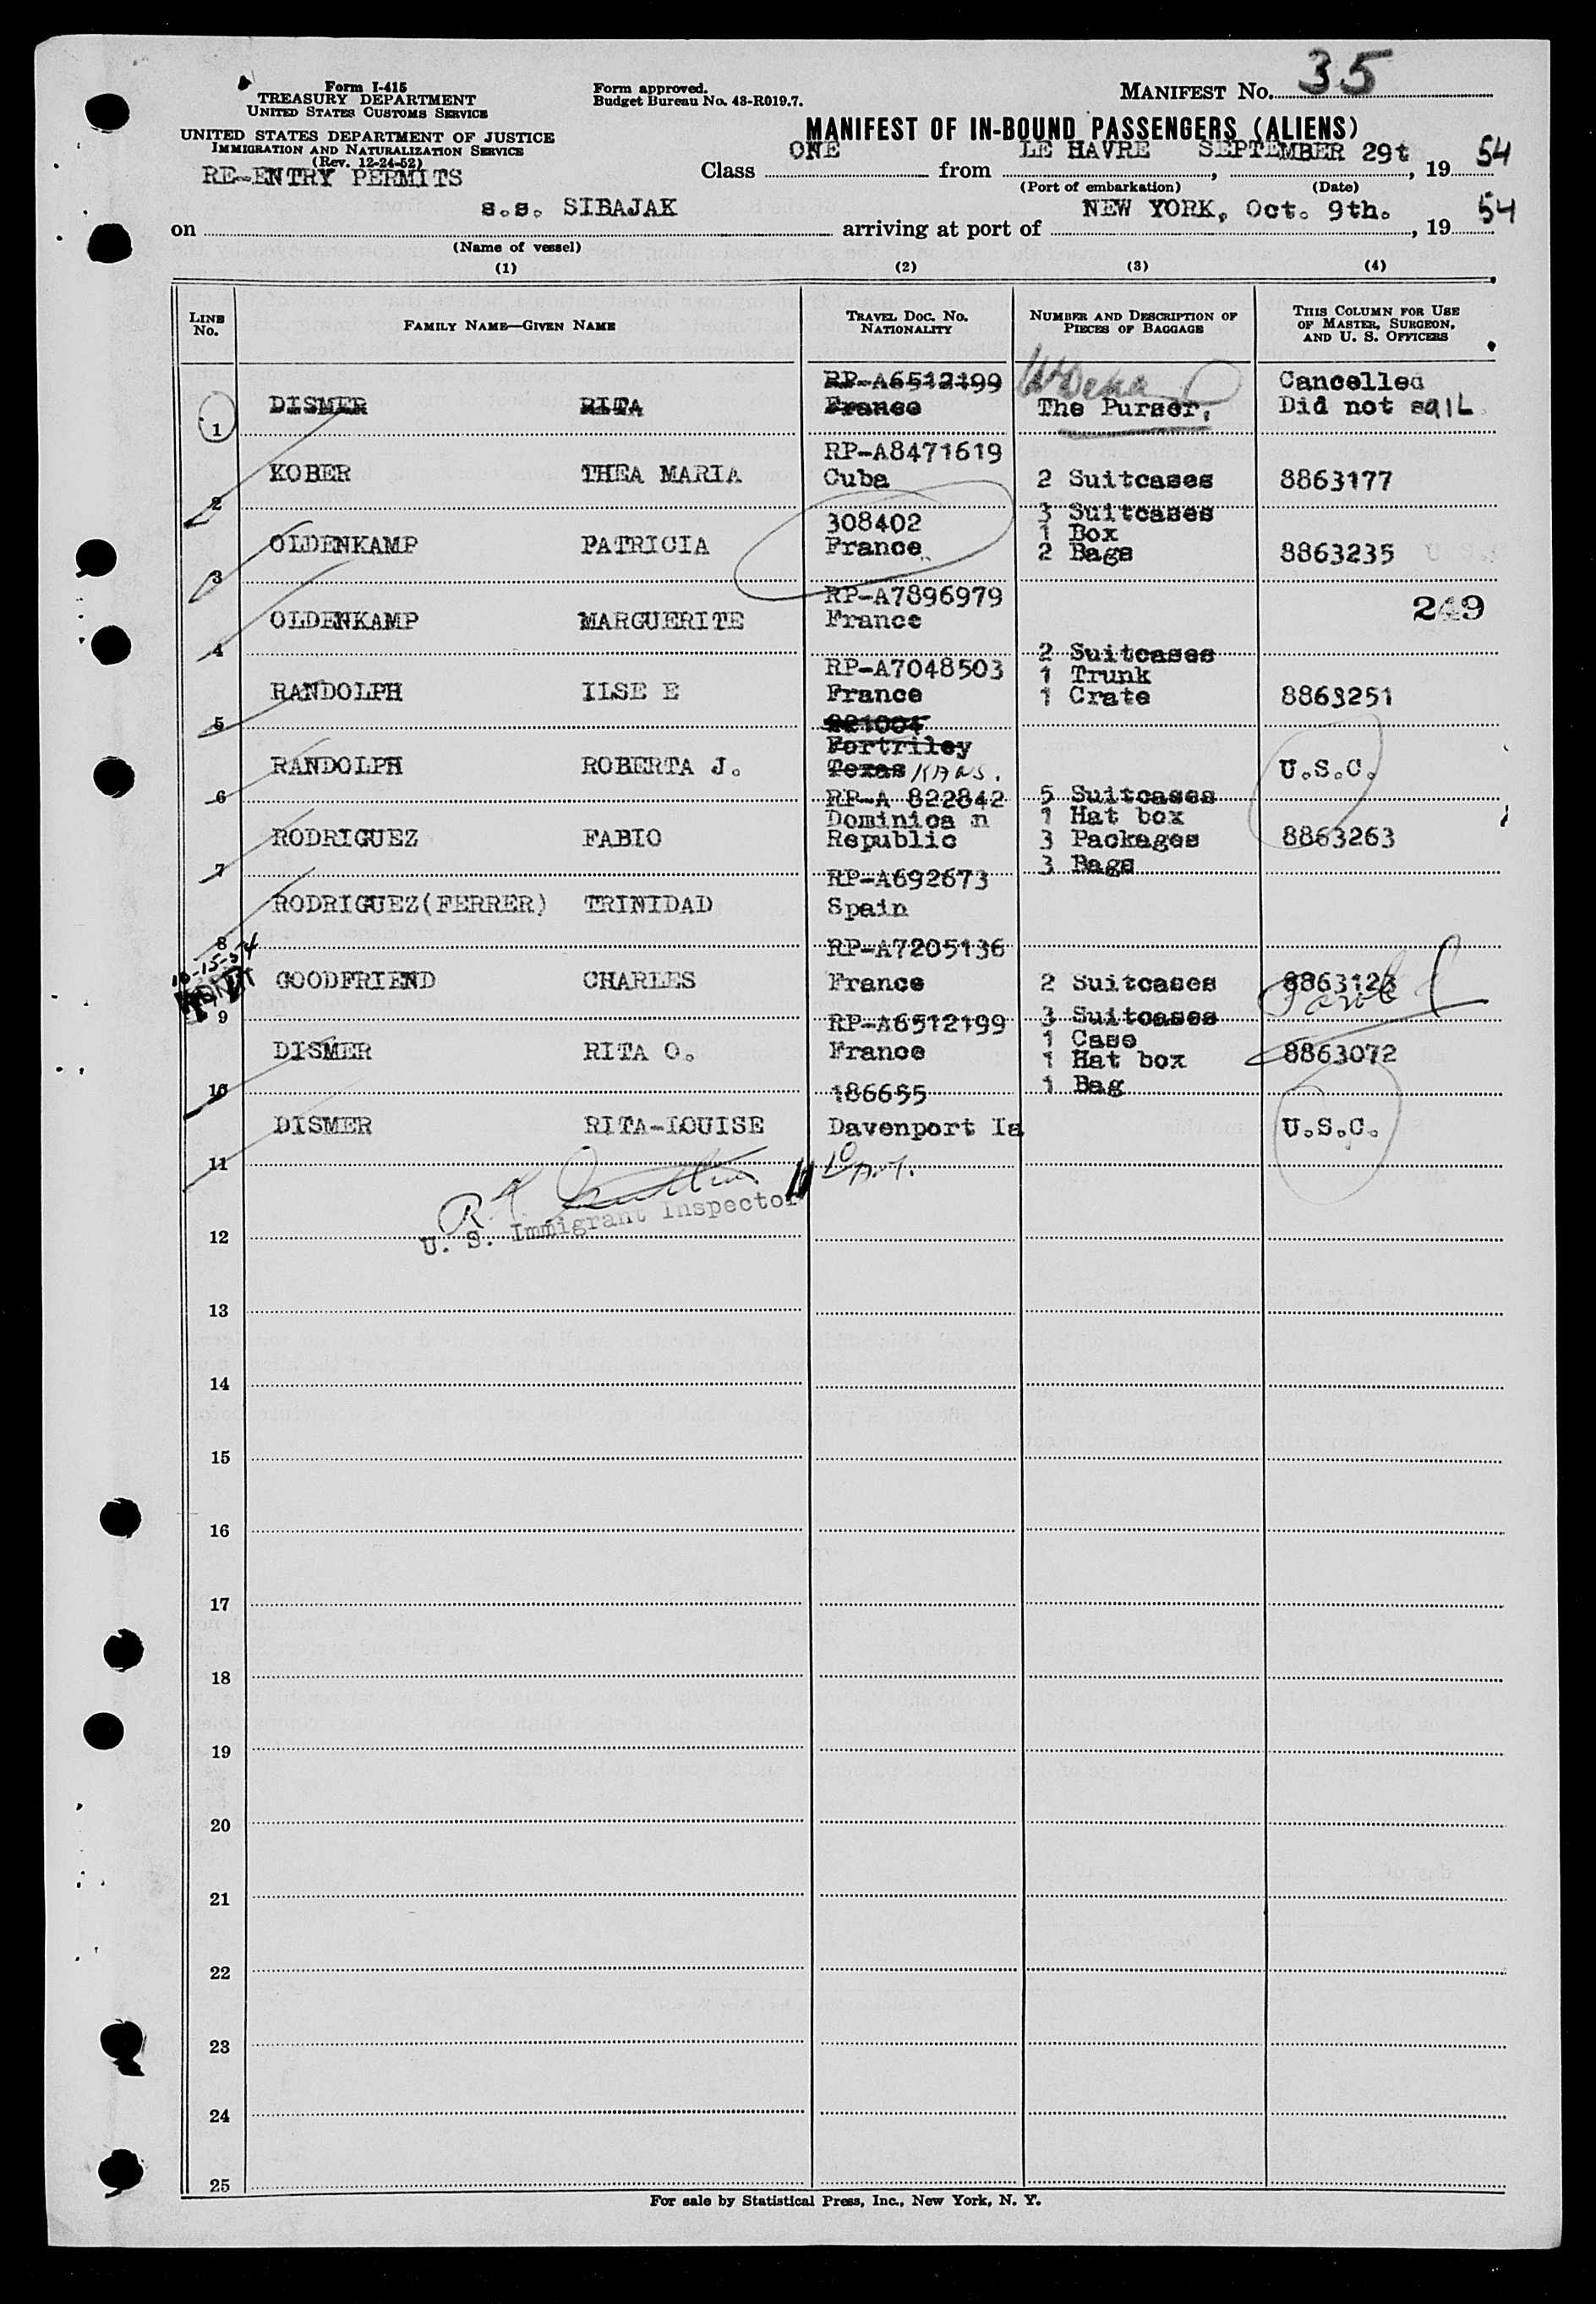 Form I-415
TREASURY DEPARTMENT
UNITED STATES CUSTOMS SERVICE
UNITED STATES DEPARTMENT OF JUSTICE
IMMIGRATION AND NATURALIZATION SERVICE
(Rev. 12-24-52)
RE-ENTRY PERMITS
Form approved.
Budget Bureau No. 43-R019.7.
MANIFEST No. 35
MANIFEST OF IN-BOUND PASSENGERS (ALIENS)
Class ONE from LE HAVRE, SEPTEMBER 29t, 1954
(Port of embarkation) (Date)
on s.s. SIBAJAK arriving at port of NEW YORK, Oct. 9th., 1954
(Name of vessel)
(1) (2) (3) (4)
LINE No. FAMILY NAME—GIVEN NAME TRAVEL DOC. NO. NATIONALITY NUMBER AND DESCRIPTION OF PIECES OF BAGGAGE THIS COLUMN FOR USE OF MASTER, SURGEON, AND U. S. OFFICERS
RP-A6512199 Cancelled
1 DISMER RITA France The Purser, Did not sail
RP-A8471619
2 KOBER THEA MARIA Cuba 2 Suitcases 8863177
308402 3 Suitcases
1 Box
3 OLDENKAMP PATRICIA France 2 Bags 8863235
RP-A7896979 249
4 OLDENKAMP MARGUERITE France
RP-A7048503 2 Suitcases
1 Trunk
5 RANDOLPH ILSE E France 1 Crate 8863251
221004
Fortriley
6 RANDOLPH ROBERTA J. Texas KANS. U.S.C.
RP-A 822842 5 Suitcases
Dominica n 1 Hat box
7 RODRIGUEZ FABIO Republic 3 Packages 8863263
3 Bags
RP-A692673
8 RODRIGUEZ(FERRER) TRINIDAD Spain
10-15-54
RP-A7205136
9 GOODFRIEND CHARLES France 2 Suitcases 8863123
RP-A6512199 3 Suitcases
1 Case
10 DISMER RITA O. France 1 Hat box 8863072
186655 1 Bag
11 DISMER RITA-LOUISE Davenport Ia U.S.C.
U. S. Immigrant Inspector
12
13
14
15
16
17
18
19
20
21
22
23
24
25
For sale by Statistical Press, Inc., New York, N. Y.